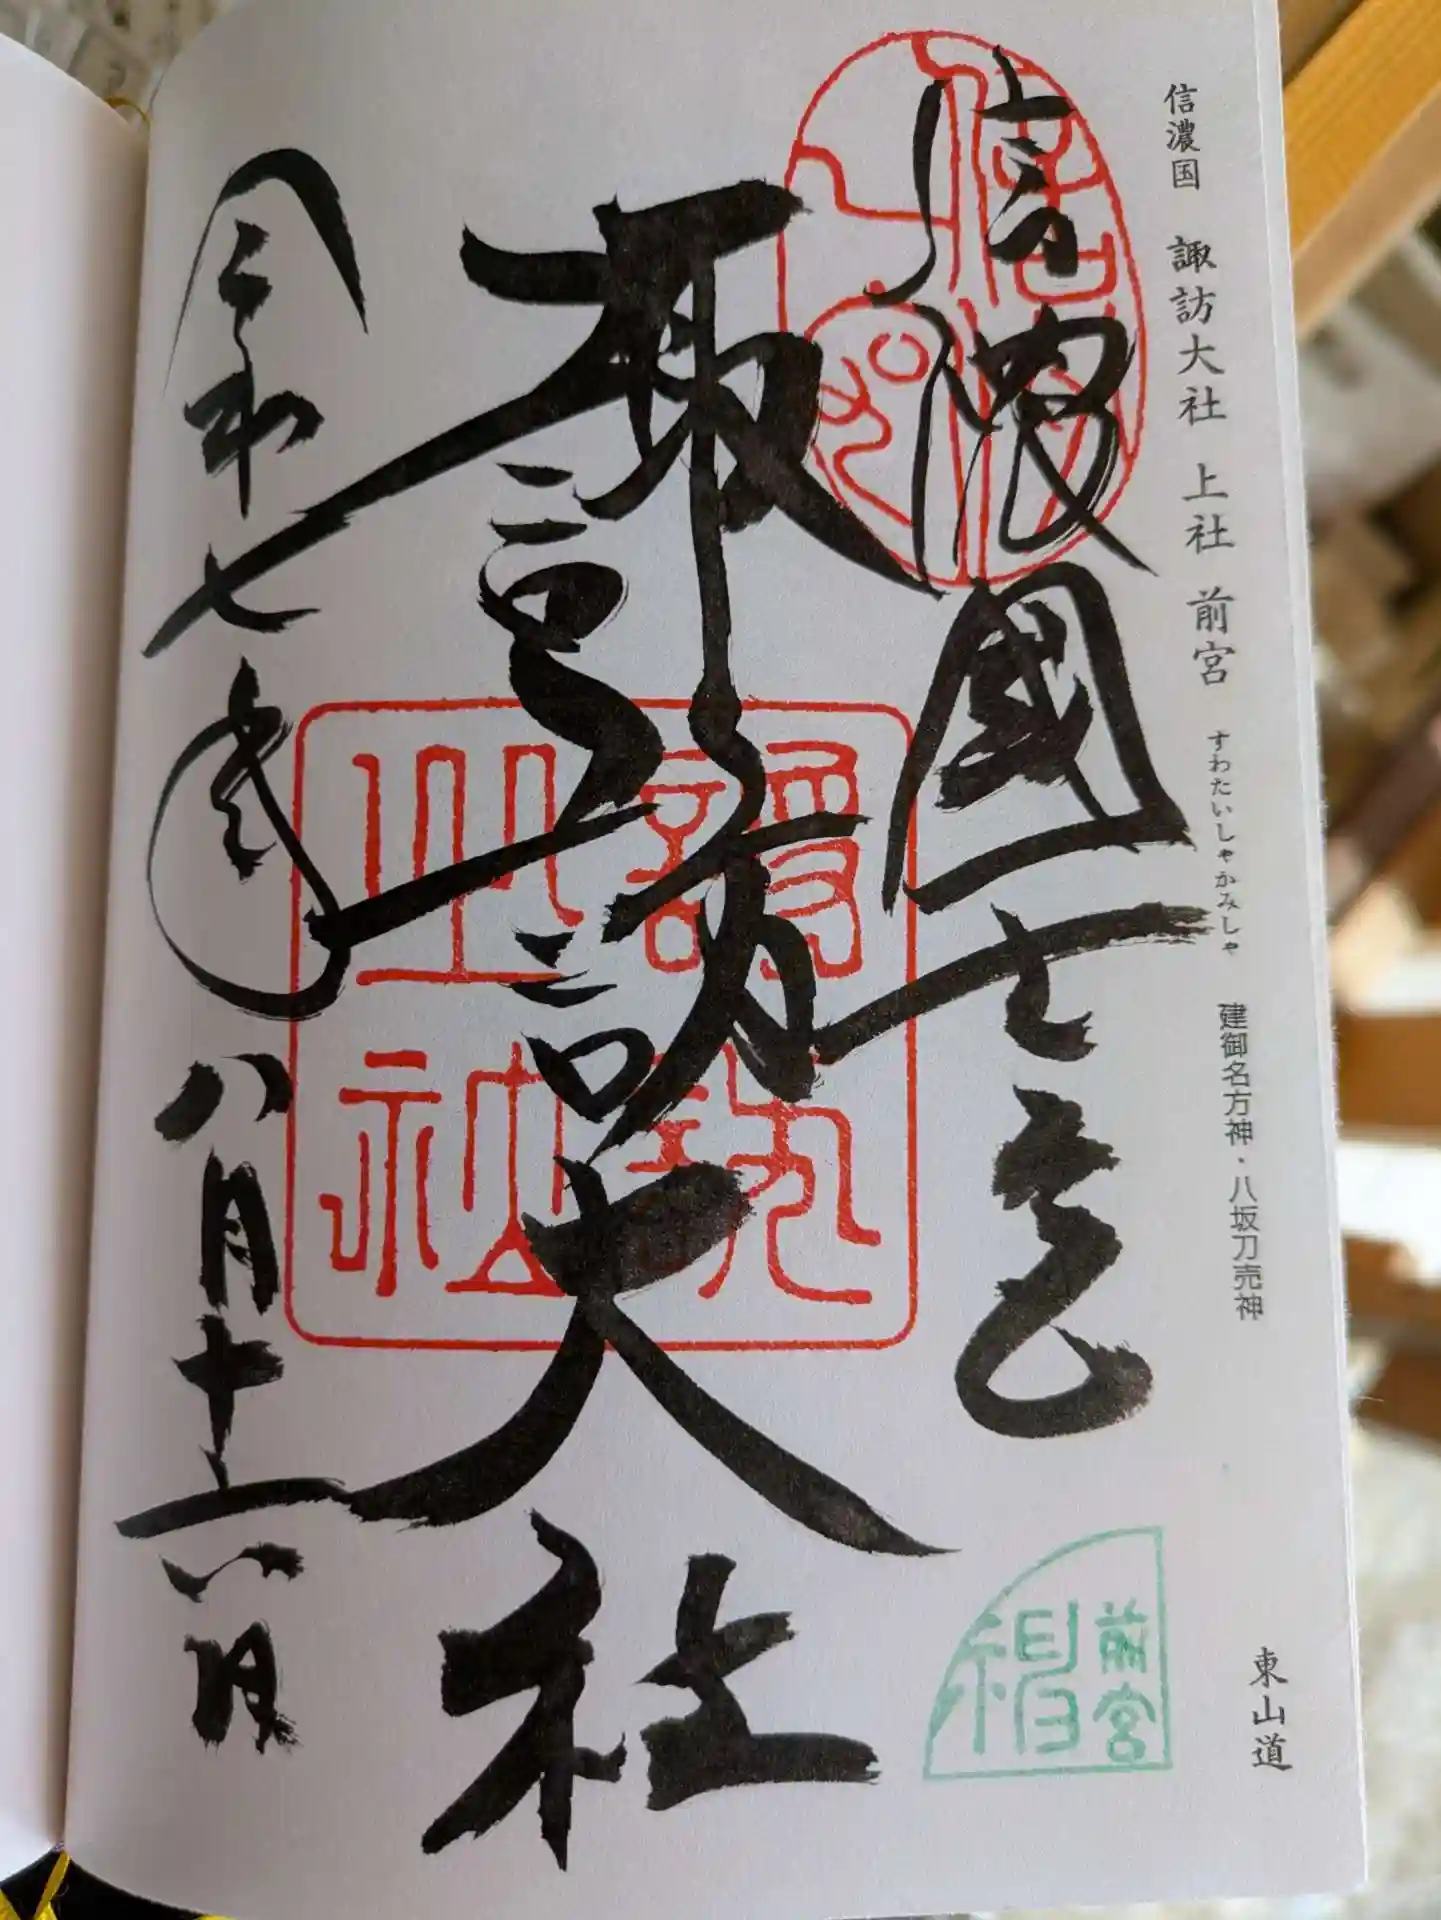 信濃国 諏訪大社 上社 前宮 すわたいしゃかみしゃ 建御名方神・八坂刀売神
東山道
信濃國一之宮
諏訪大社
令和七年八月十六日
前宮